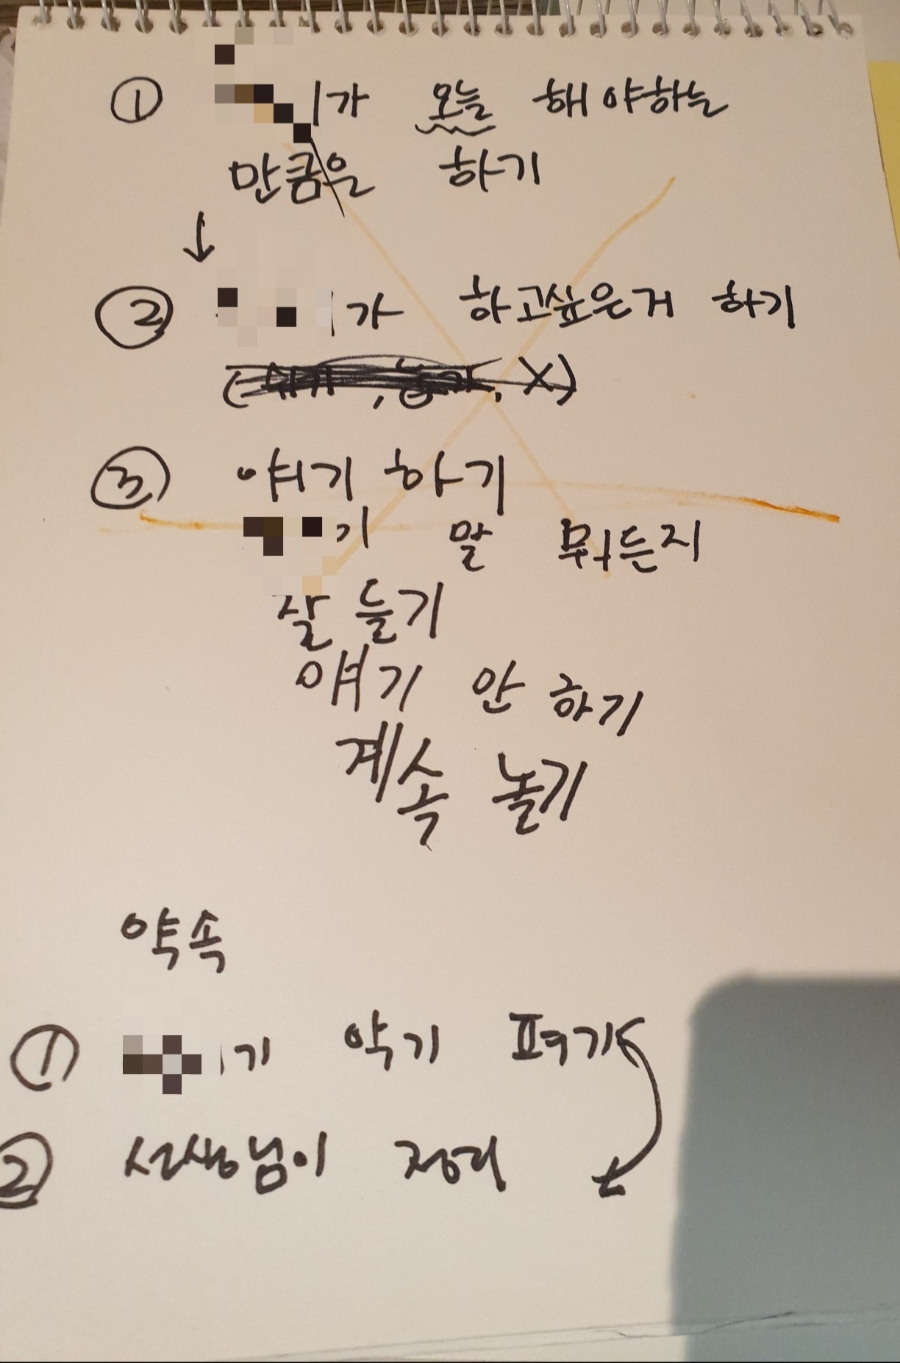 ① 가 오늘 해야하는
만큼은 하기
↓
② 가 하고싶은거 하기
③ 얘기 하기
말 뭐든지
잘 듣기
얘기 안 하기
계속 놀기
약속
① 악기 펴기
② 선생님이 정리